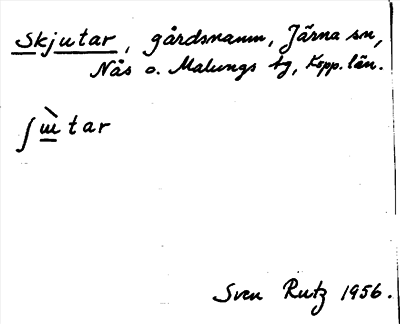 Skjutar, gårdsnamn, Järna sn,
Nås o. Malungs tg, Kopp. län.
ʃɯ̀tar
Sven Rutz 1956.